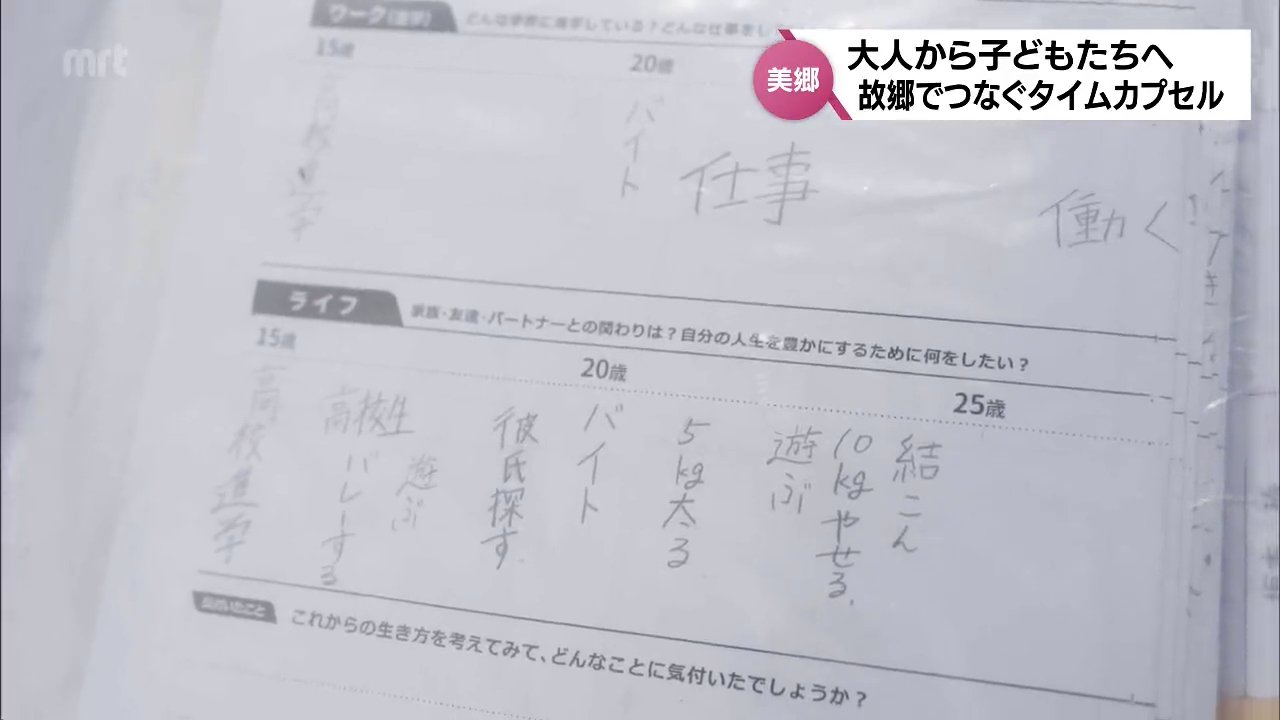 mrt
美郷
大人から子どもたちへ
故郷でつなぐタイムカプセル
ワーク(進学) どんな学校に進学している?どんな仕事をし
15歳
20歳
高校進学
バイト
仕事
働く
ライフ 家族・友達・パートナーとの関わりは?自分の人生を豊かにするために何をしたい?
15歳
20歳
25歳
高校進学
高校生
バレーする
遊ぶ
彼氏探す
バイト
5kg太る
遊ぶ
10kgやせる.
結こん
これからの生き方を考えてみて、どんなことに気付いたでしょうか?